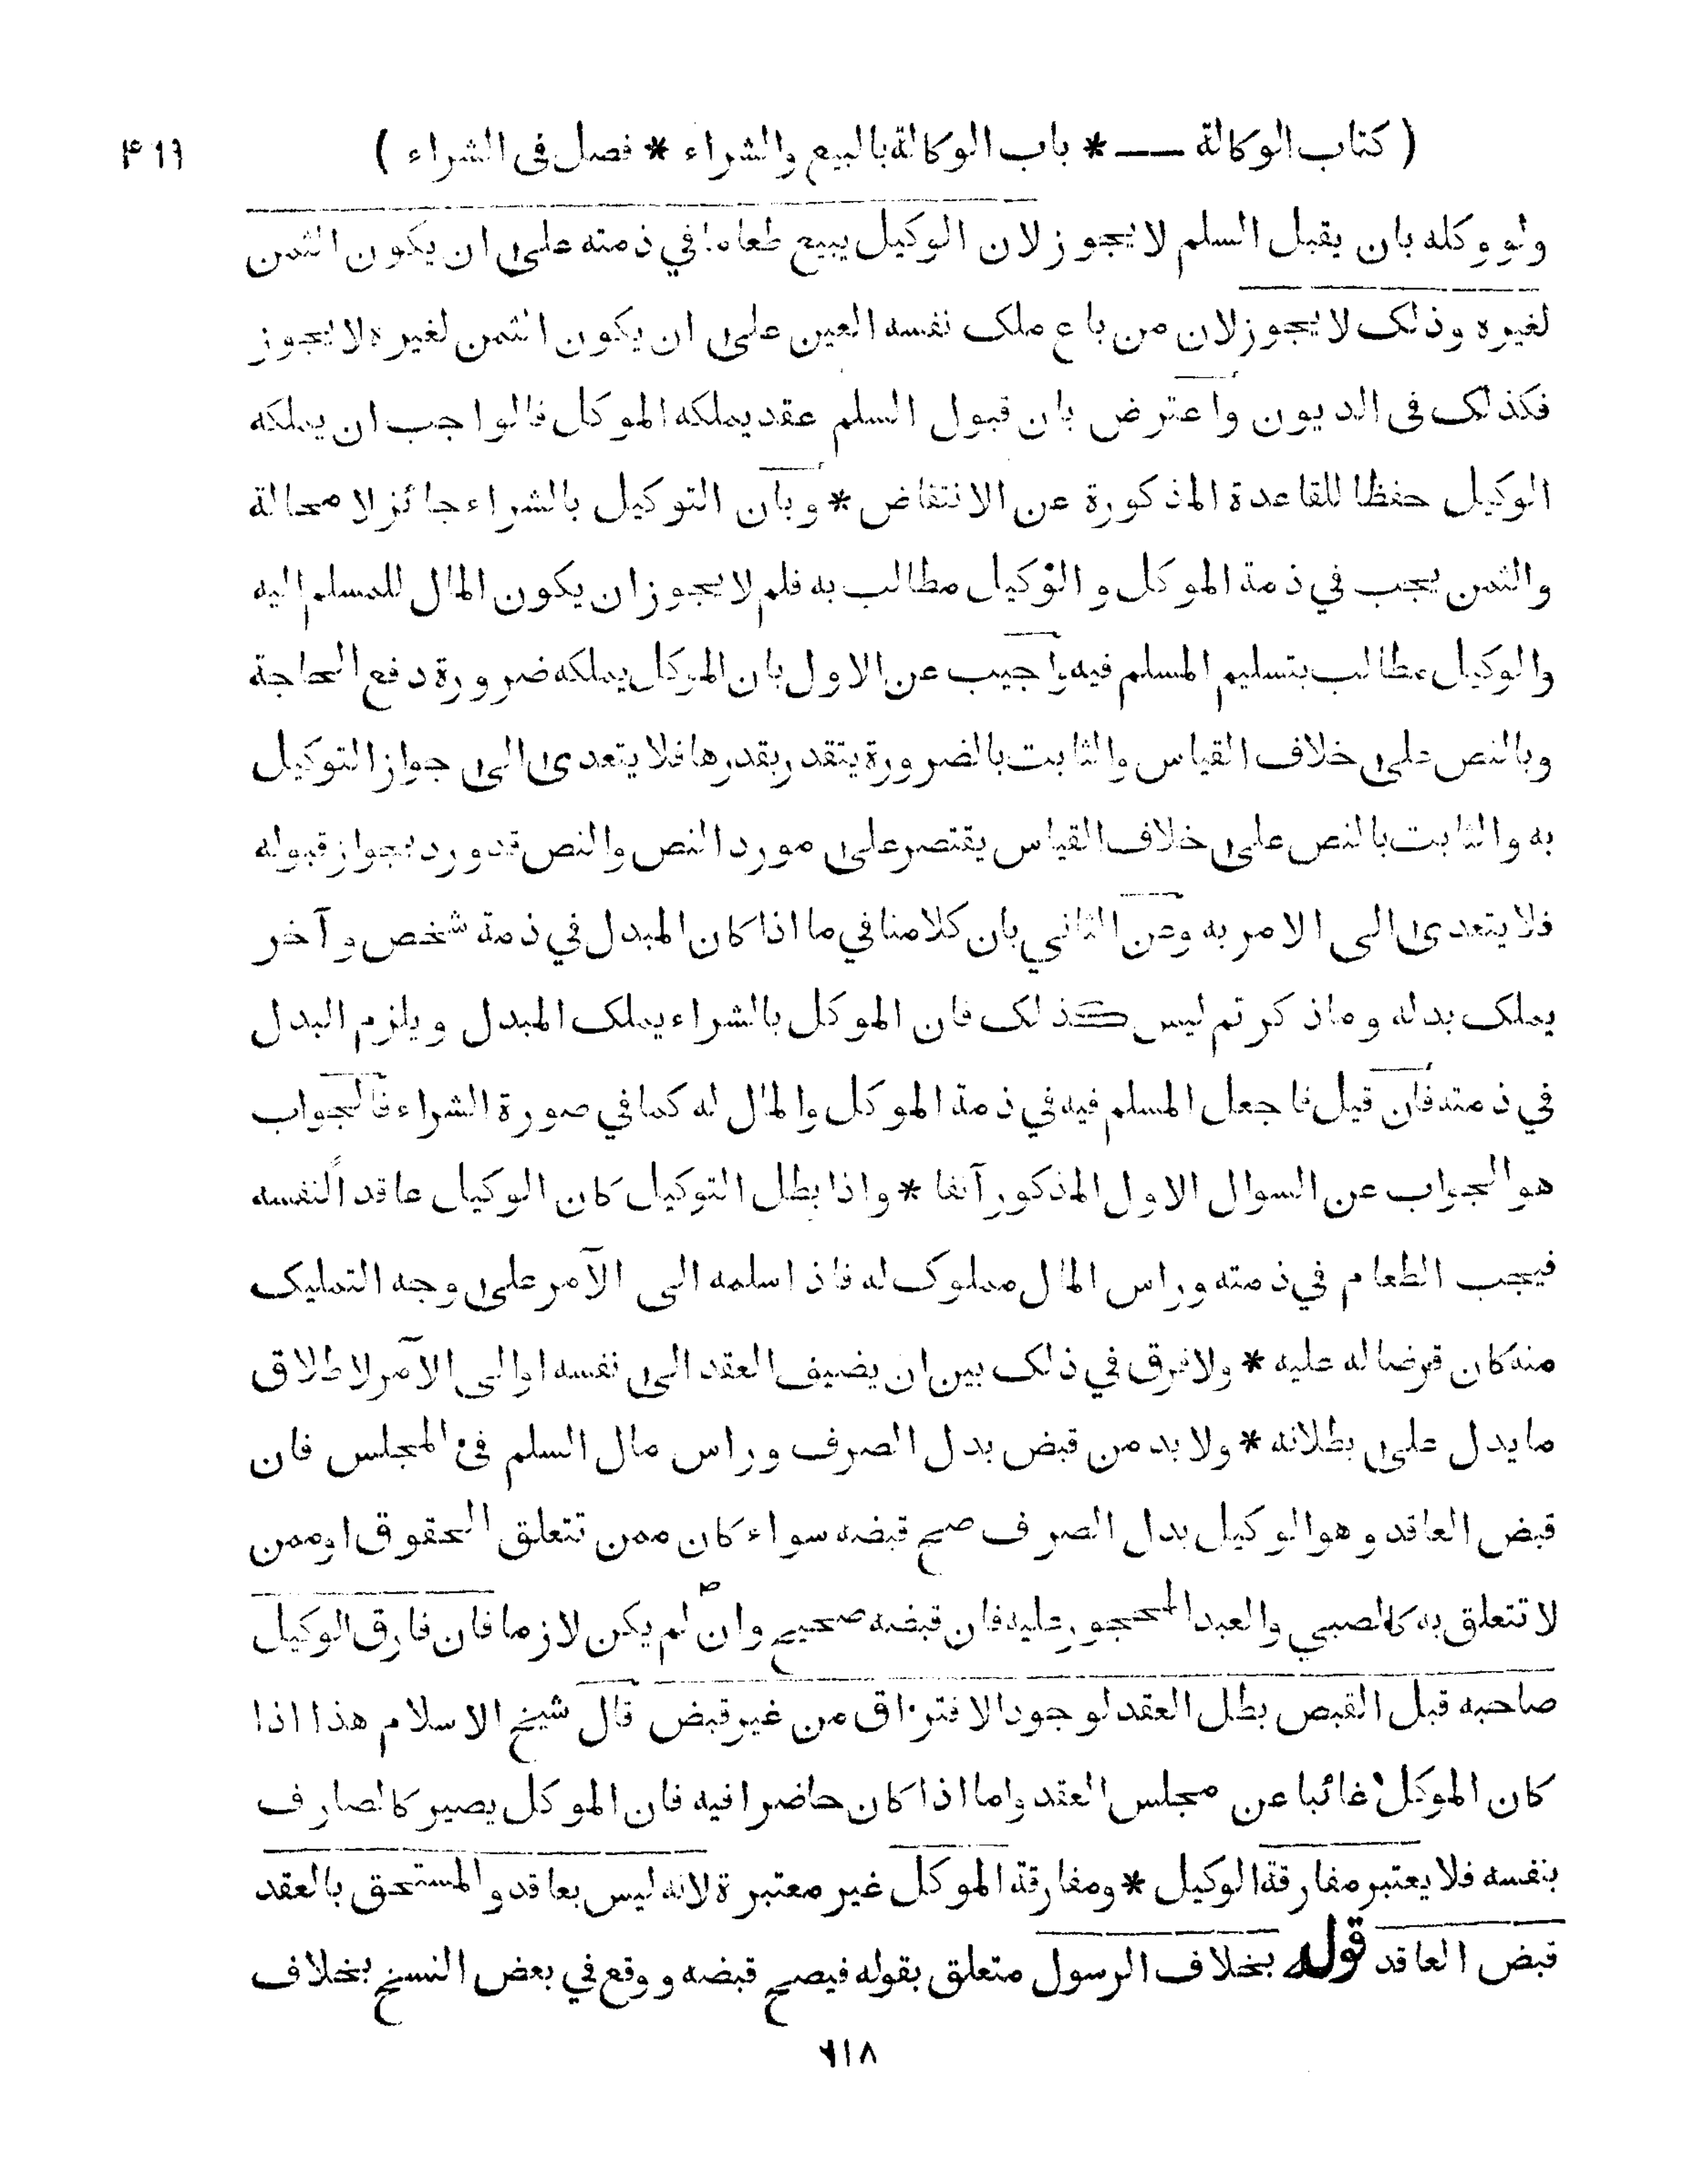 ( كتاب الوكالة —— * باب الوكالة بالبيع والشراء * فصل فى الشراء )
ولو وكله بان يقبل السلم لا يجوز لان الوكيل يبيع طعاما في ذمته على ان يكون الثمن
لغيره وذلك لا يجوز لان من باع ملك نفسه العين على ان يكون الثمن لغيره لا يجوز
فكذلك فى الديون واعترض بان قبول السلم عقد يملكه الموكل فالواجب ان يملكه
الوكيل حفظا للقاعدة المذكورة عن الانتقاض * وبان التوكيل بالشراء جائز لا محالة
والثمن يجب في ذمة الموكل و الوكيل مطالب به فلم لا يجوز ان يكون المال للمسلم اليه
والوكيل مطالب بتسليم المسلم فيه واجيب عن الاول بان الموكل يملكه ضرورة دفع الحاجة
وبالنص على خلاف القياس والثابت بالضرورة يتقدر بقدرها فلا يتعدى الى جواز التوكيل
به والثابت بالنص على خلاف القياس يقتصر على مورد النص والنص قد ورد بجواز قبوله
فلا يتعدى الى الامر به وعن الثاني بان كلامنا في ما اذا كان المبدل في ذمة شخص و آخر
يملك بدله وماذكرتم ليس كذلك فان الموكل بالشراء يملك المبدل ويلزم البدل
في ذمته فان قيل فاجعل المسلم فيه في ذمة الموكل والمال له كما في صورة الشراء فالجواب
هو الجواب عن السوال الاول المذكور آنفا * واذا بطل التوكيل كان الوكيل عاقدا لنفسه
فيجب الطعام في ذمته وراس المال مملوك له فاذا سلمه الى الآمر على وجه التمليك
منه كان قرضا له عليه * ولا فرق في ذلك بين ان يضيف العقد الى نفسه او الى الآمر لاطلاق
ما يدل على بطلانه * ولا بد من قبض بدل الصرف وراس مال السلم في المجلس فان
قبض العاقد وهو الوكيل بدل الصرف صح قبضه سواء كان ممن تتعلق الحقوق او ممن
لا تتعلق به كالصبي والعبد المحجور عليه فان قبضه صحيح وان لم يكن لازما فان فارق الوكيل
صاحبه قبل القبص بطل العقد لوجود الافتراق من غير قبض قال شيخ الاسلام هذا اذا
كان الموكل غائبا عن مجلس العقد واما اذا كان حاضرا فيه فان الموكل يصير كالصارف
بنفسه فلا يعتبر مفارقة الوكيل * ومفارقة الموكل غير معتبرة لانه ليس بعاقد والمستحق بالعقد
قبض العاقد قوله بخلاف الرسول متعلق بقوله فيصح قبضه ووقع في بعض النسخ بخلاف